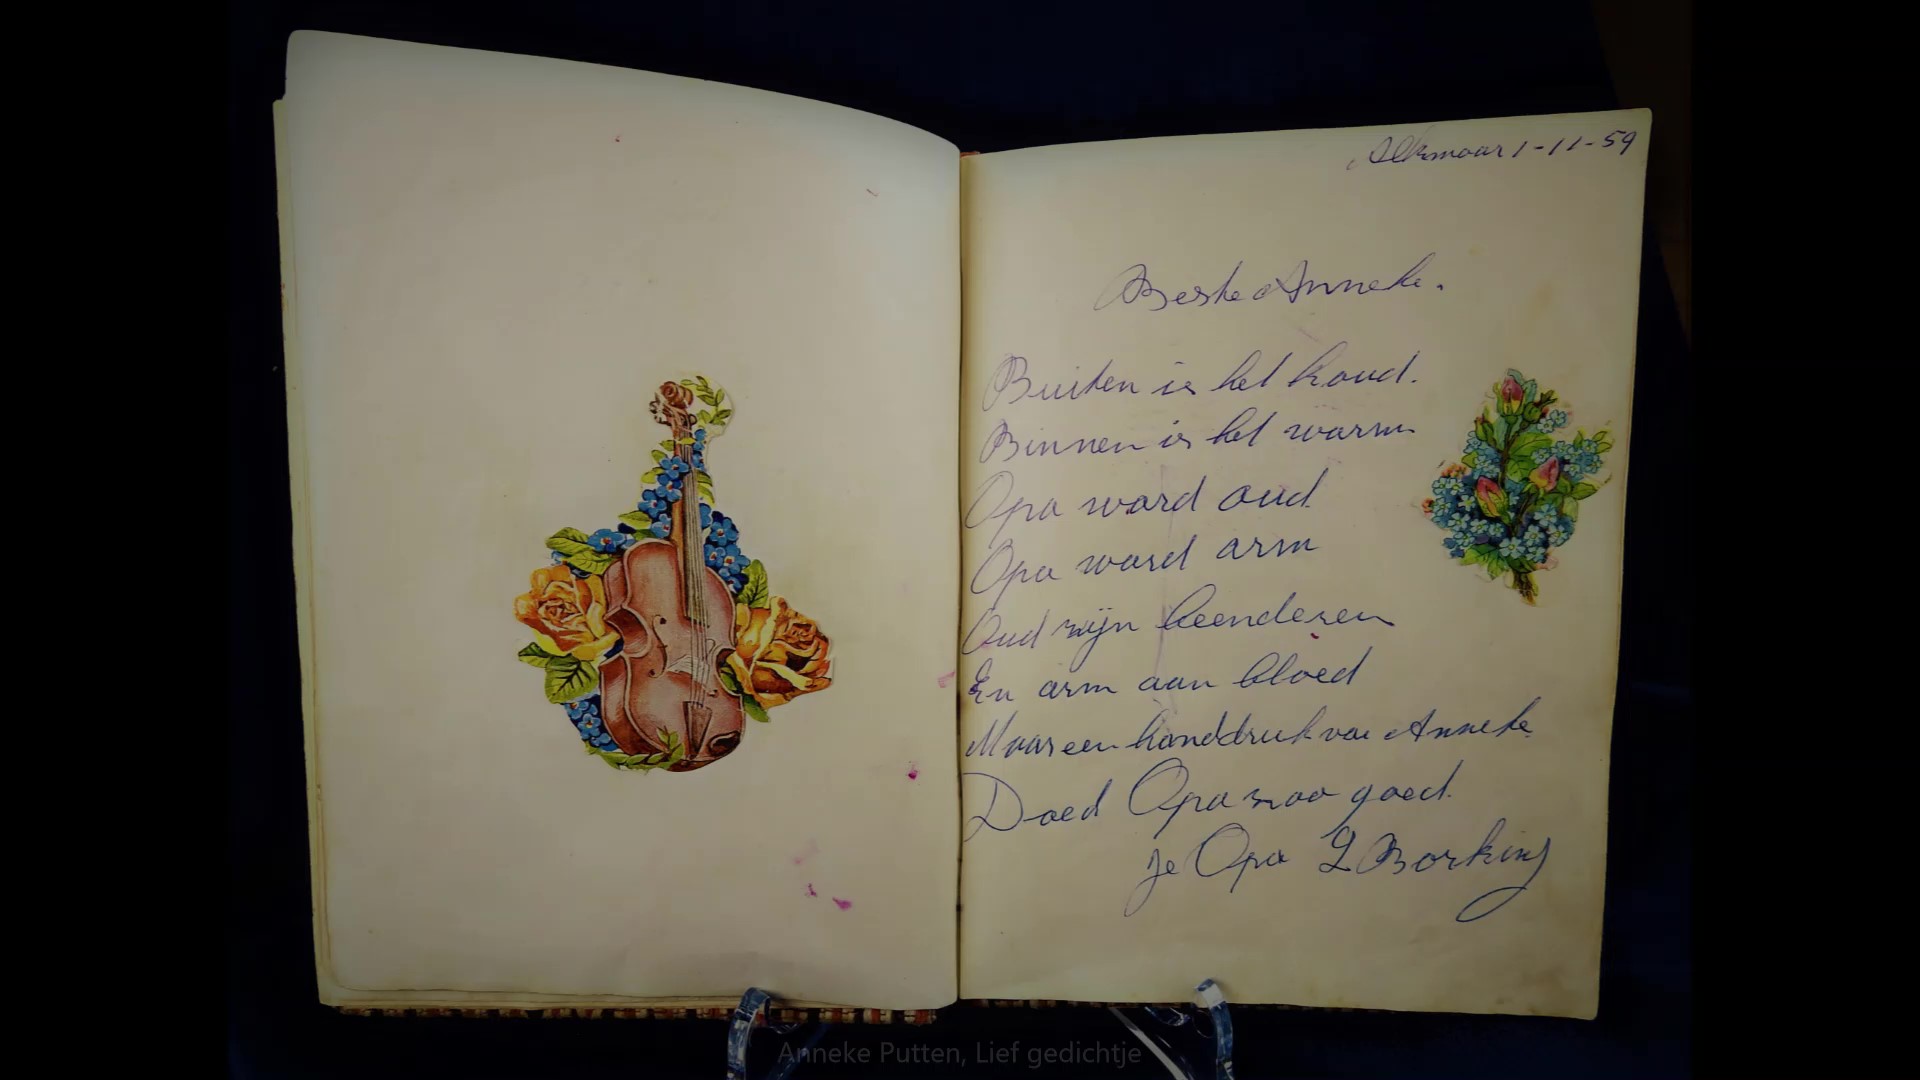 Alkmaar 1-11-59
Beste Anneke.
Buiten is het koud.
Binnen is het warm
Opa word oud
Opa word arm
Oud zijn beenderen
En arm aan bloed
Maar een handdruk van Anneke
Doed Opa zoo goed.
je Opa L Borking
Anneke Putten, Lief gedichtje